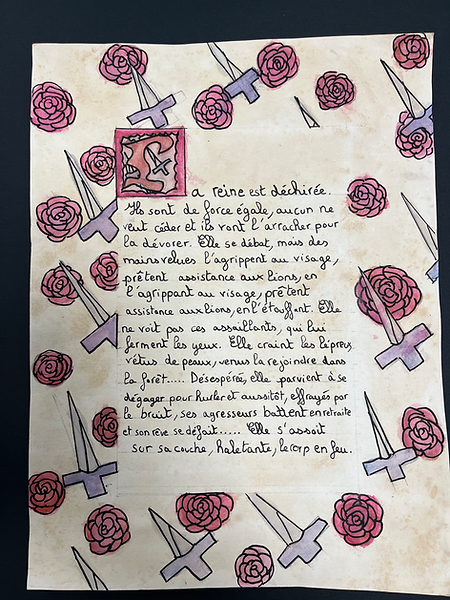 La reine est déchirée.
Ils sont de force égale, aucun ne
veut céder et ils vont l'arracher pour
la dévorer. Elle se débat, mais des
mains velues l'agrippent au visage,
prêtent assistance aux lions, en
l'agrippant au visage, prêtent
assistance aux lions, en l'étouffant. Elle
ne voit pas ces assaillants, qui lui
ferment les yeux. Elle craint les lépreux,
vêtus de peaux, venus la rejoindre dans
la forêt..... Désespéré, elle parvient à se
dégager pour hurler et aussitôt, effrayés par
le bruit, ses agresseurs battent en retraite
et son rêve se défait..... Elle s'assoit
sur sa couche, haletante, le corp en feu.